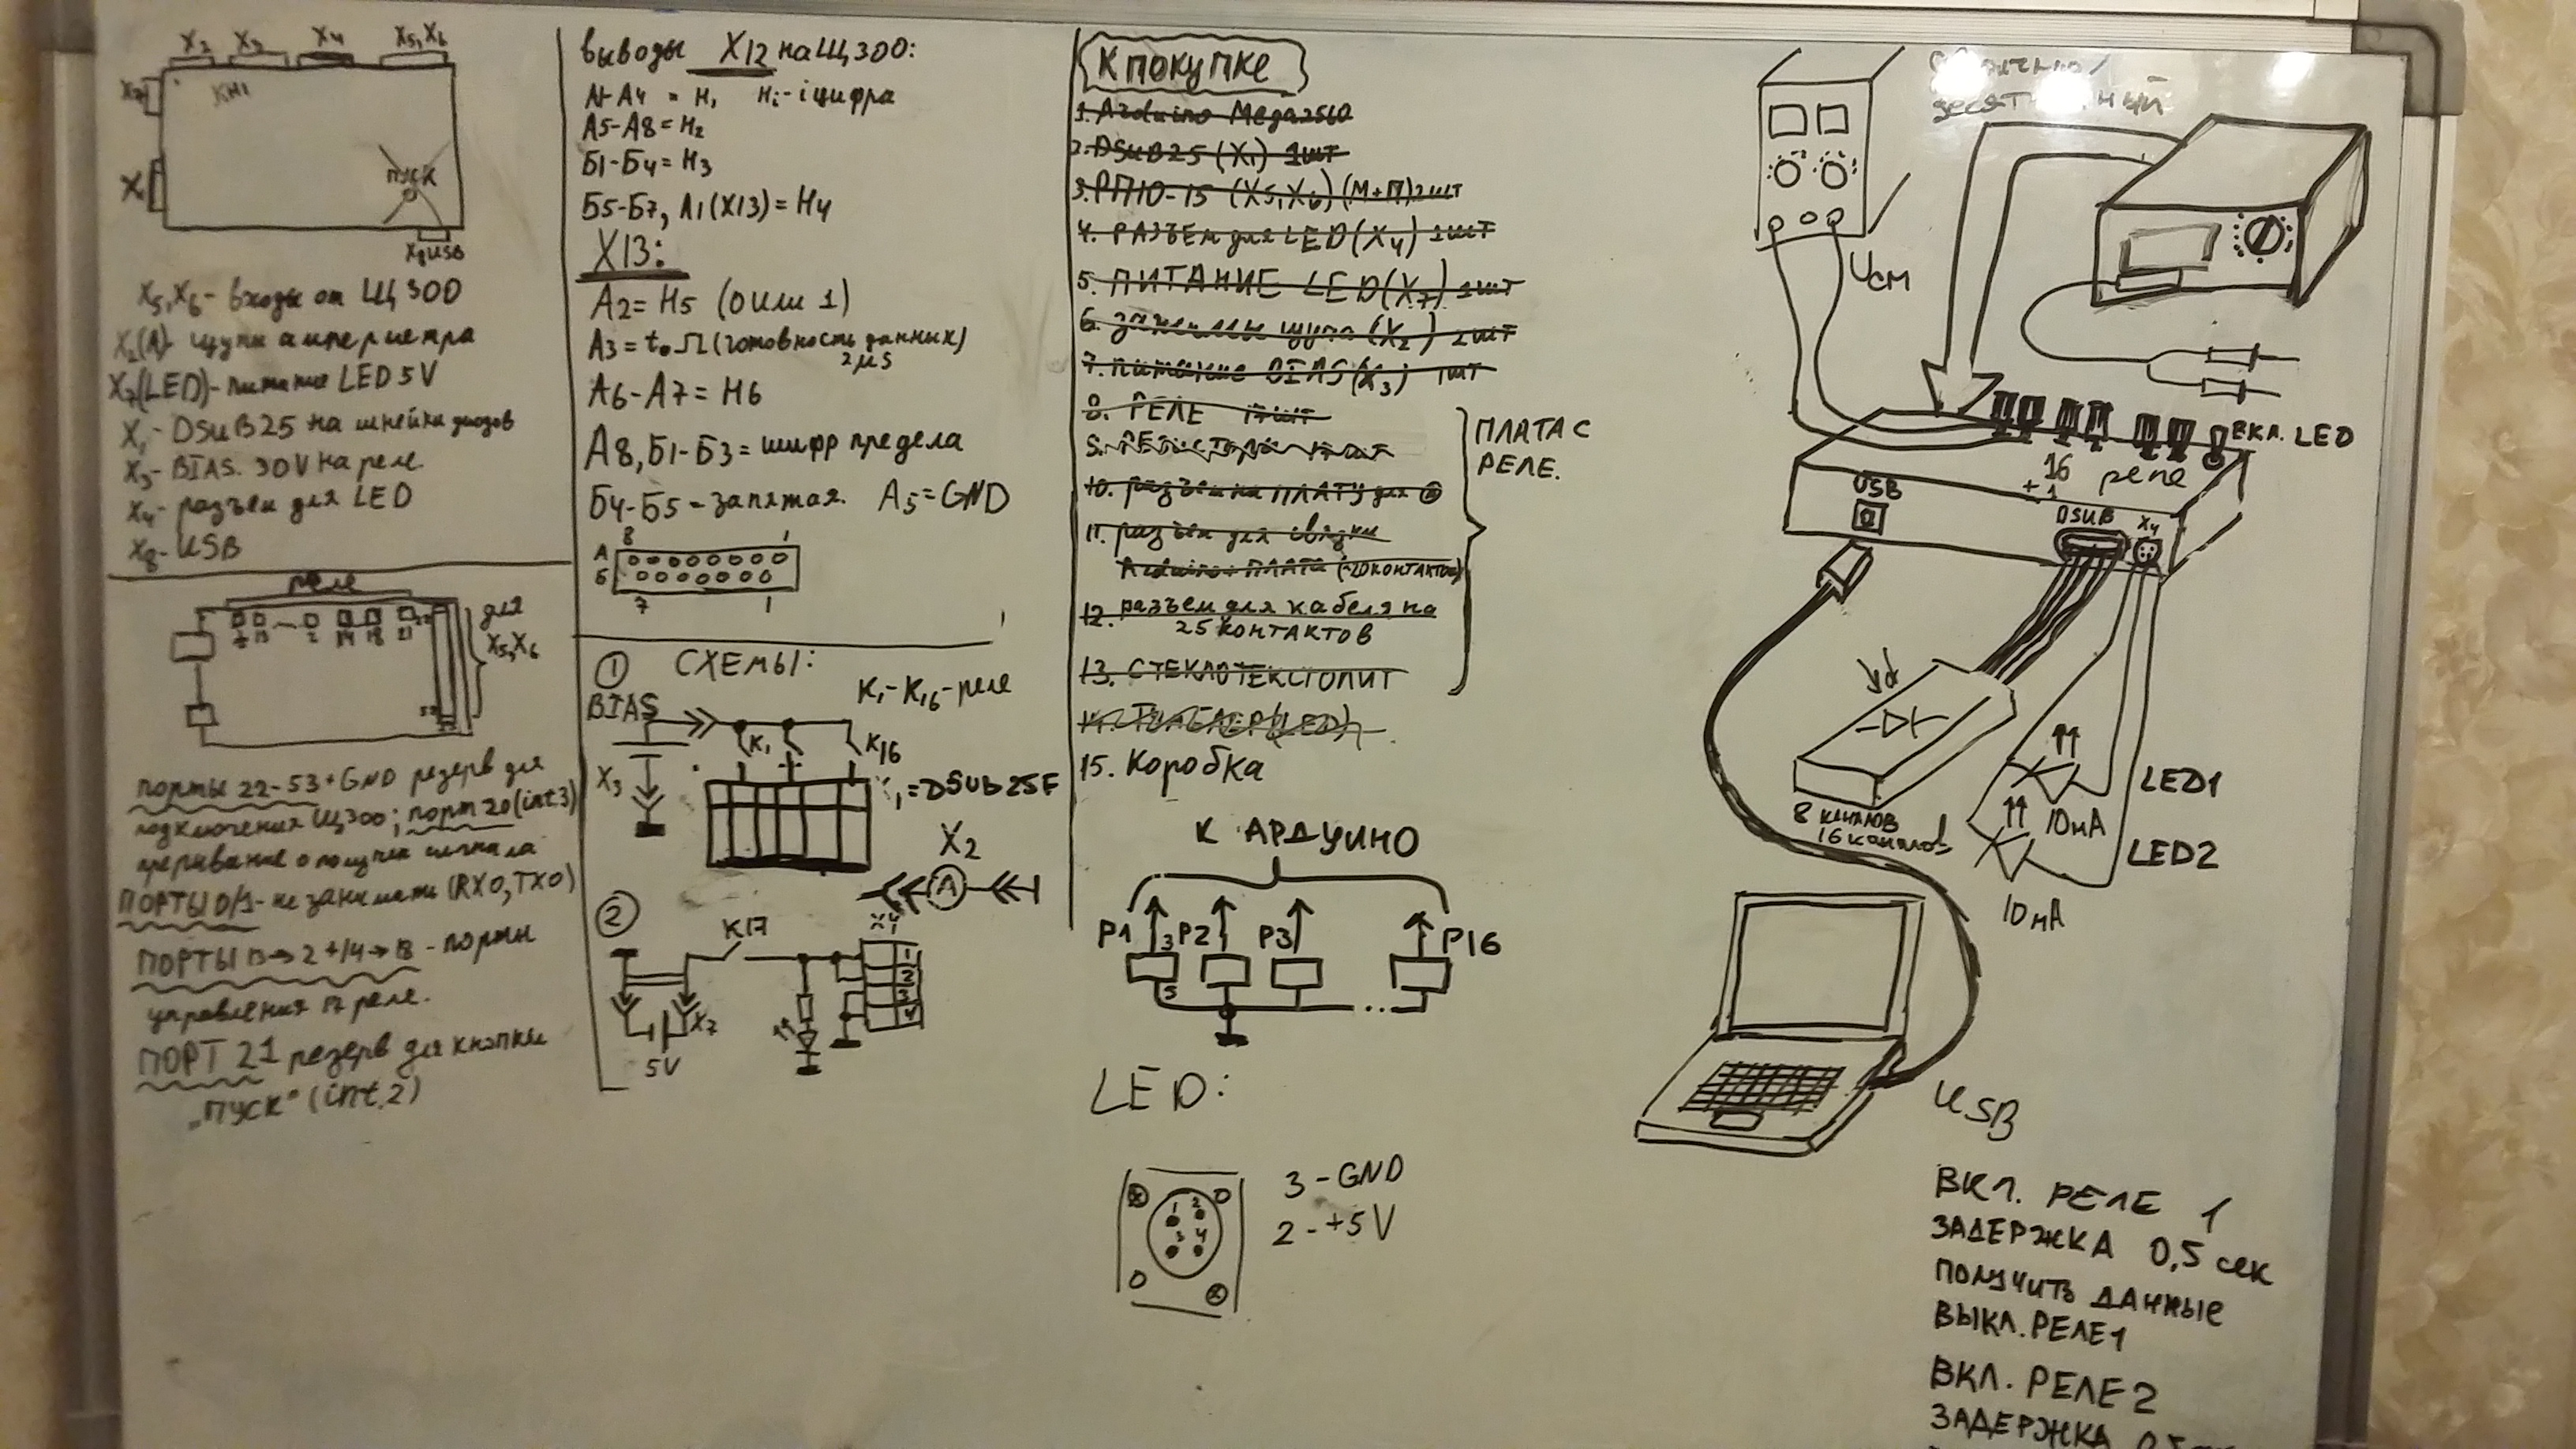 X2 X3 X4 X5,X6
X7
КН1
X1
ПУСК
X8USB
X5,X6 - входы от Щ300
X2(A)- щупы амперметра
X7(LED)- питание LED 5V
X1- DSUB25 на линейки диодов
X3- BIAS. 30V на реле.
X4- разъем для LED
X8- USB
реле
13 2 14 18 21
для
X5,X6
порты 22-53+GND резерв для
подключения Щ300; порт 20(int.3)
прерывание о получен сигнала
ПОРТЫ 0/1- не занимать (RX0,TX0)
ПОРТЫ 13→2+14→18 - порты
управления 17 реле.
ПОРТ 21 резерв для кнопки
„ПУСК" (int.2)
выводы X12 на Щ300:
А1-А4 = H1 Hi - i цифра
А5-А8=H2
Б1-Б4=H3
Б5-Б7, А1(X13)=H4
X13:
А2=H5 (0 или 1)
А3=t.Ω(готовность данных)
2μs
А6-А7=H6
А8,Б1-Б3=шифр предела
Б4-Б5-запятая. А5=GND
8 1
А
Б
7 1
① СХЕМЫ:
K1-K16-реле
BIAS
K1 K16
X3
X1=DSUB25F
X2
A
②
K17
X4
1
2
3
4
X7
5V
К ПОКУПКЕ
1. Arduino Mega2560
2. DSUB25 (X1) 1шт
3. РП10-15 (X5,X6) (М+П) 2шт
4. РАЗЪЕМ для LED(X4) 1шт
5. ПИТАНИЕ LED(X7) 1шт
6. зажимные щупа (X2) 2шт
7. питание BIAS(X3) 1шт
8. РЕЛЕ 17шт
9. РЕЗИСТОРЫ 17шт
10. разъем на ПЛАТУ для
11. разъем для связки
Arduino+ПЛАТА (~20контактов)
12. разъем для кабеля на
25 контактов
13. СТЕКЛОТЕКСТОЛИТ
15. Коробка
ПЛАТА С
РЕЛЕ.
К АРДУИНО
P1 3 P2 P3 P16
5
...
LED:
1 2
3 4
3 - GND
2 - +5V
Uсм
ВКЛ. LED
16 реле
+1
USB
DSUB X4
8 каналов
16 каналов
LED1
10мА
LED2
10мА
USB
ВКЛ. РЕЛЕ 1
ЗАДЕРЖКА 0,5 сек
ПОЛУЧИТЬ ДАННЫЕ
ВЫКЛ. РЕЛЕ1
ВКЛ. РЕЛЕ2
ЗАДЕРЖКА